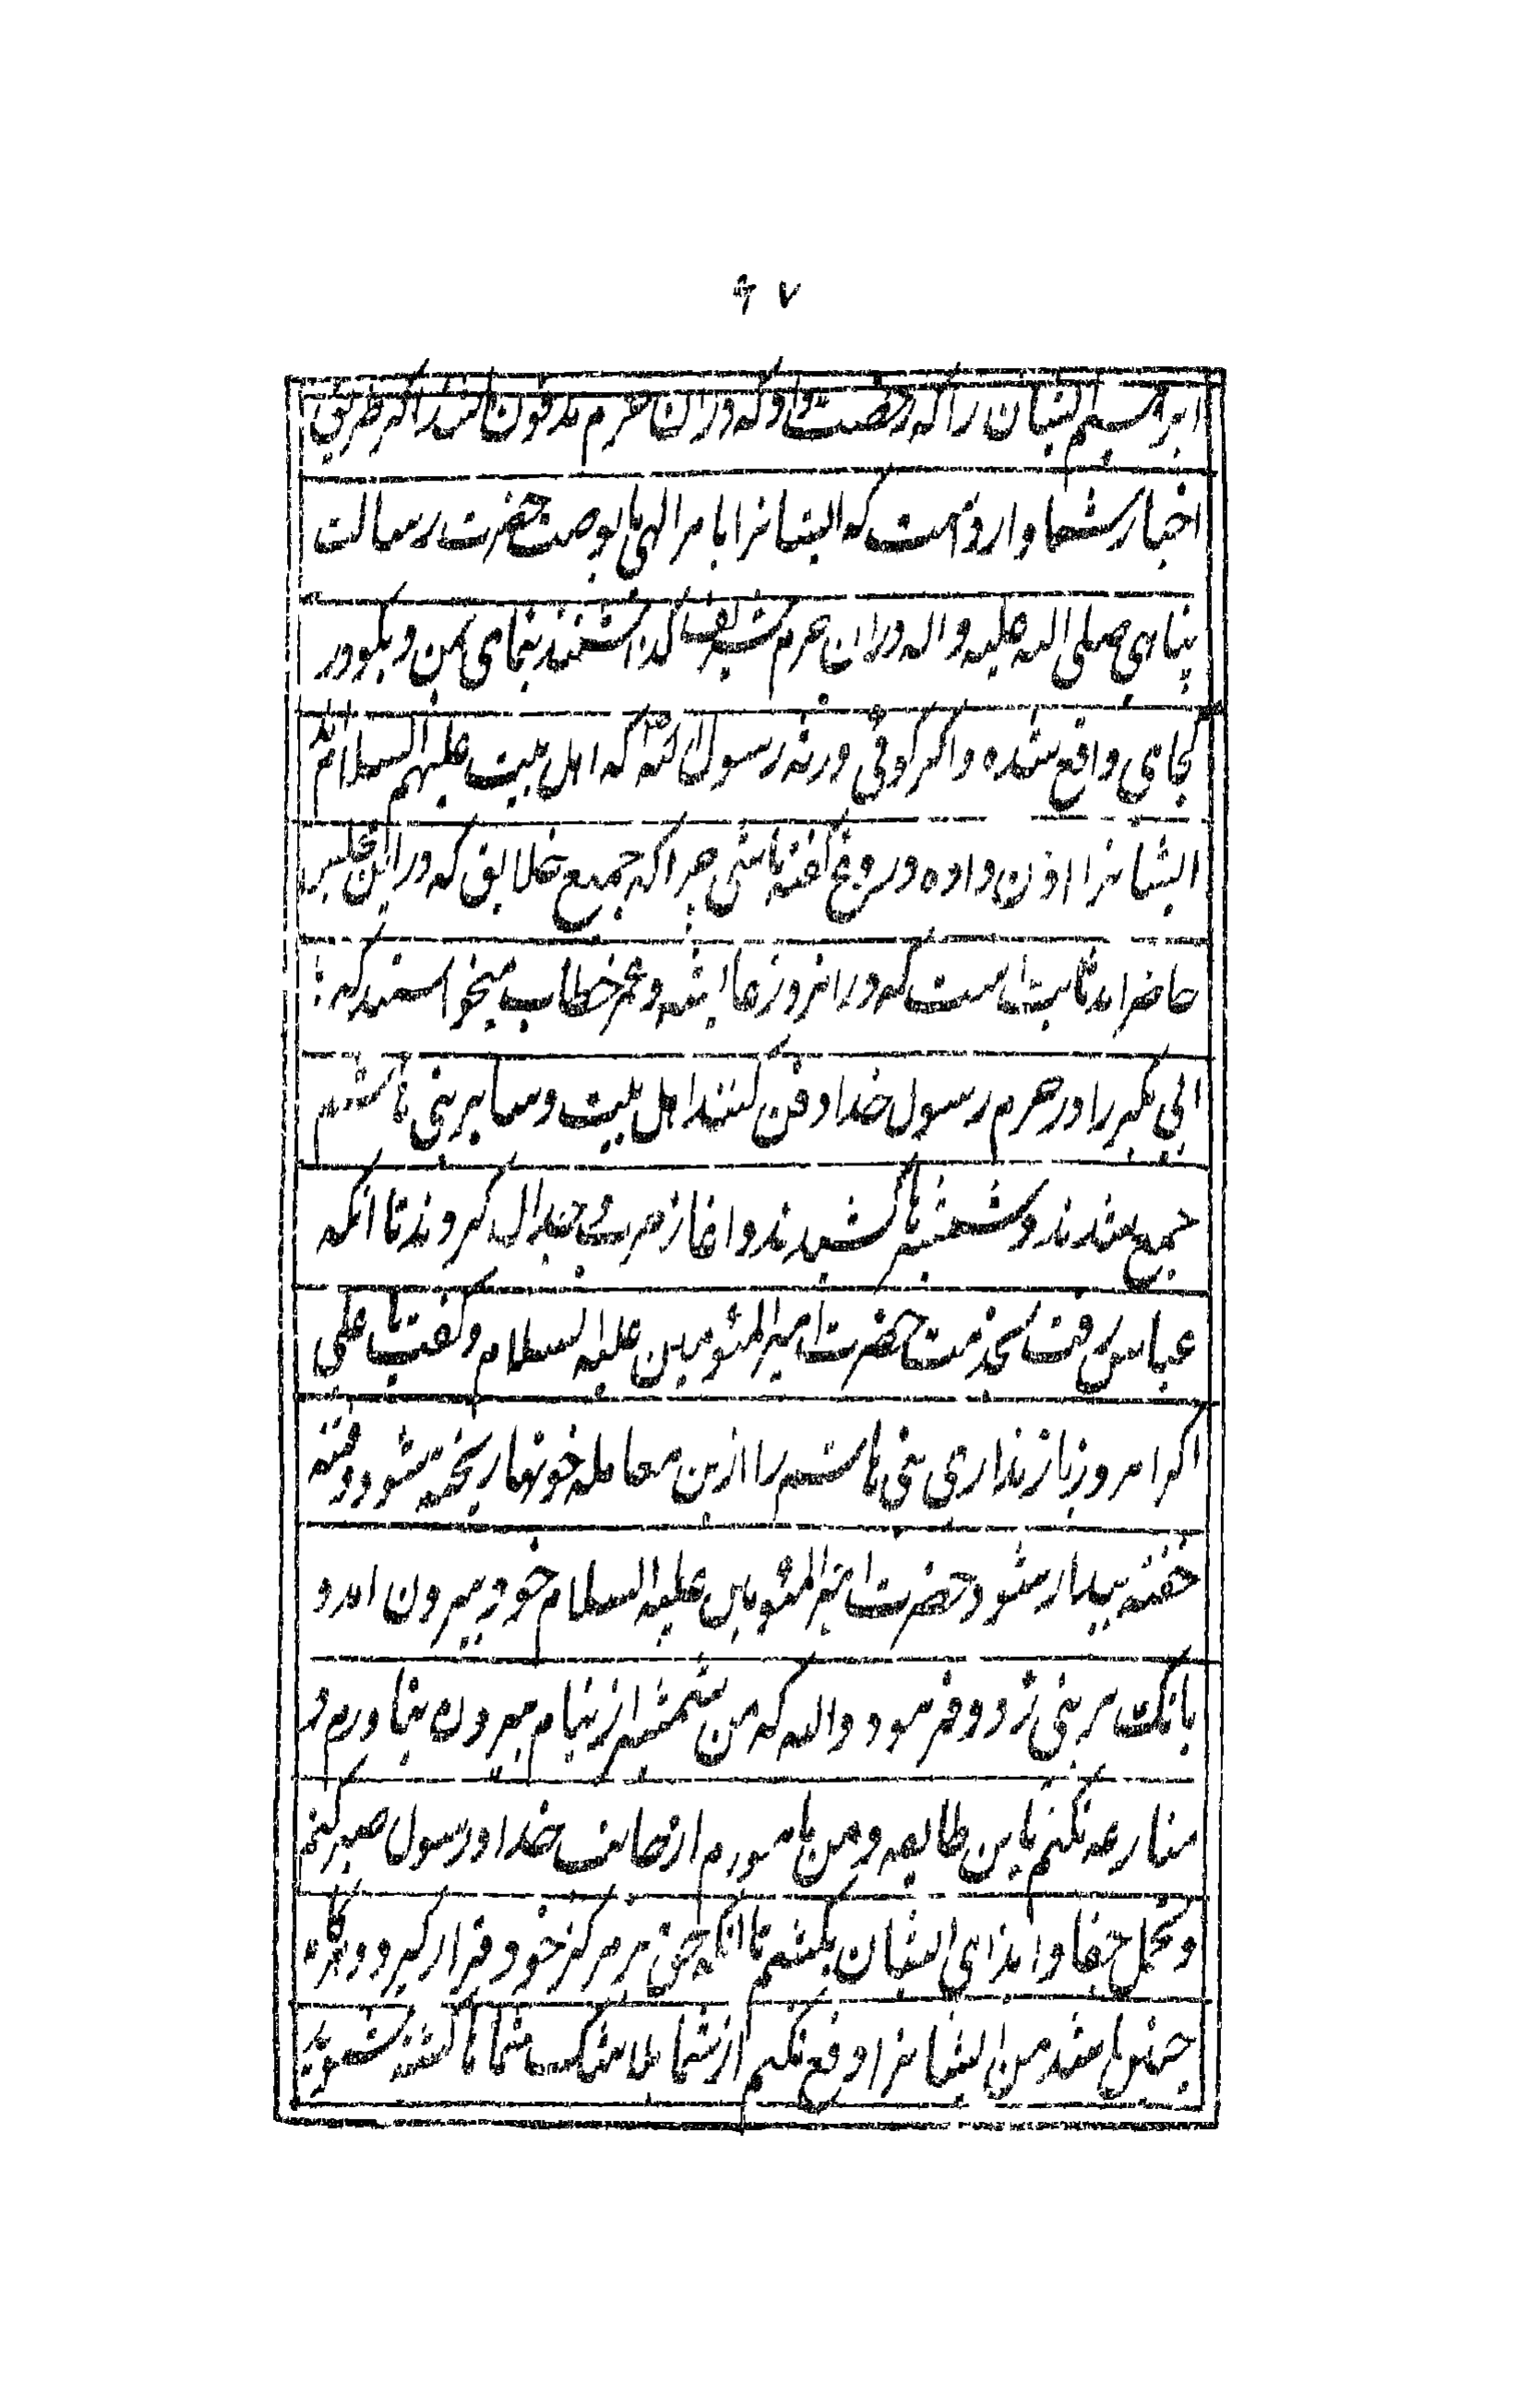 ۶۷
ایشان را که رخصت داد که در ان حرم مدفون اکر طریق
اخبار شما وارد است که ایشانرا بامر الهی یا بوصیت حضرت رسالت
پناهی صلی اله علیه و اله در ان حرم شریف کذاشتند بنمای بمن و بکو در
کجای واقع شده و اکر کوئی ورثه رسول الله که اهل بیت علیهم السلام اند
ایشانرا اذن داده دروغ کفته باشی چرا که جمیع خلایق که در این مجلس
حاضراند ثابت است که در انروز عایشه و عمر خطاب میخواستند که
ابی بکر را در حرم رسول خدا دفن کنند اهل بیت و سایر بنی هاشم
جمع شدند و شمشیرها کشیدند و اغاز حرب و جدال کردند تا انکه
عباس رفت بخدمت حضرت امیر المئومنین علیه السلام و کفت یا علی
اکر امروز باز نداری بنی هاشم را ازین معامله خونها ریخته مشود و فتنه
خفته بیدار مشود حضرت امیر المئومنین علیه السلام خود بیرون امد و
بانک بر بنی زد و فرمود واله که من شمشیر از نیام بیرون نیاورم و
منازعه نکنم باین طایفه و من مامورم از جانب خدا و رسول صبر کنم
و تحمل جفا و ایذای ایشان بکشم تا انکه حق بر مرکز خود قرار کیرد و هرکاه
چنین باشد من ایشانرا دفع نکنم از شما بلا شک شما ها کشته شوید